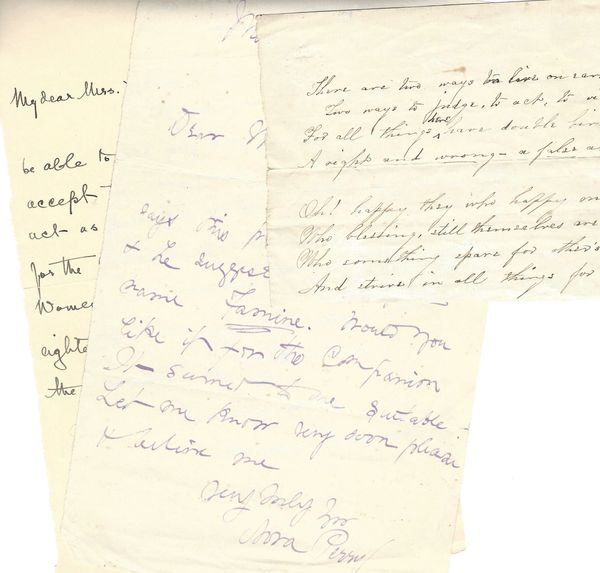 My dear Mrs.
be able to
accept
act as
for the
Women
eighte
the
Dear M
says this
& he suggese
name Famine. Would you
like it for the Companion
It seemed to me suitable -
Let me know very soon please
& believe me
very truly yrs
Nora Perry
There are two ways to live on ear
Two ways to judge, to act, to vi
For all things here have double bir
A right and wrong - a false a
Oh! happy they who happy ma
Who blessing, still themselves are
Who something spare for other's
And strive in all things for